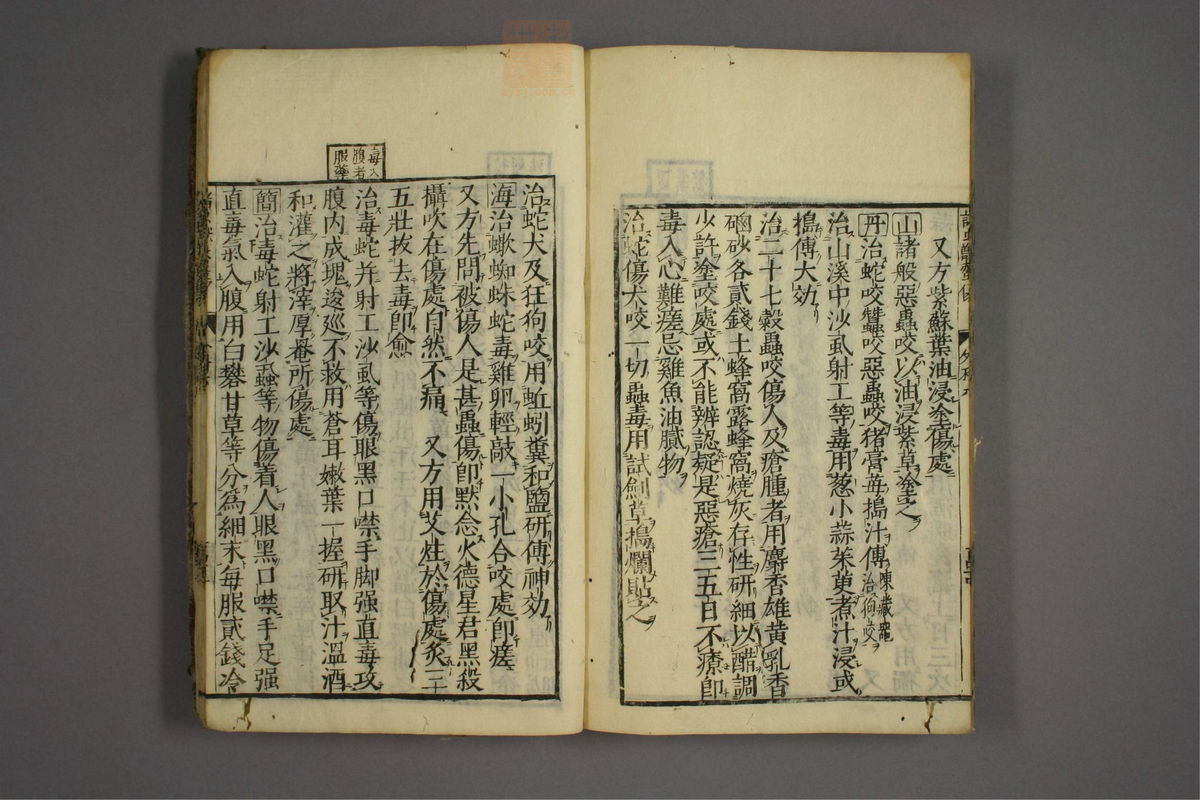 又方紫蘇葉油浸塗傷處
山諸般惡蟲咬以油浸紫草塗之
丹治蛇咬蠶咬惡蟲咬猪膏苺搗汁傅 陳藏噐治狗咬
治山溪中沙虱射工等毒用葱小蒜茱萸煮汁浸或
搗傅大効
治二十七般蟲咬傷人及瘡腫者用麝香雄黄乳香
硇砂各貳錢土蜂窩露蜂窩燒灰存性研細以醋調
少許塗咬處或不能辨認疑是惡瘡三五日不療即
毒入心難瘥忌雞魚油膩物
治蛇傷犬咬一切蟲毒用試劍草搗爛貼之
毒入腹者服藥
治蛇犬及狂狗咬用蚯蚓糞和鹽研傅神効
海治蠍蜘蛛蛇毒雞卵輕敲一小孔合咬處即瘥
又方先問被傷人是甚蟲傷即默念火德星君黑殺
攝吹在傷處自然不痛 又方用艾炷於傷處灸三
五壯拔去毒即愈
治毒蛇并射工沙虱等傷眼黑口噤手脚强直毒攻
腹内成塊逡巡不救用蒼耳嫩葉一握研取汁溫酒
和灌之將滓厚罨所傷處
簡治毒蛇射工沙蟲等物傷着人眼黑口噤手足强
直毒氣入腹用白礬甘草等分爲細末每服貳錢冷